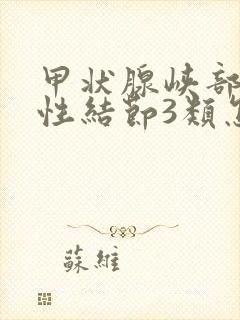 甲状腺峡部
性結節3類
蘇維